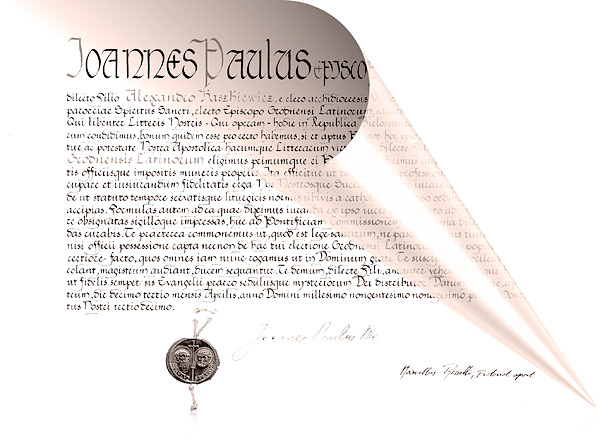 Joannes Paulus episco
dilecto filio Alexandro Kaszkiewicz, e clero archidioecesis
paroeciae Spiritus Sancti, electo Episcopo Grodnensi Latinorum, salutem
Qui libenter Litteris Nostris - Qui operam - hodie in Republica Bielorus
cum condidimus, bonum quidem esse pro certo habemus, si et aptus
tue ac potestate Nostra Apostolica harumque Litterarum
Grodnensis Latinorum eligimus primumque ei
tis officiisque impositis muneris proprii. Ita efficitur ut
cupare et iusiurandum fidelitatis erga Nos Nostrosque
de ut statuto tempore servatisque liturgicis normis
accipias. Formulas autem ad ea quae diximus iuranda ex ipso
te obsignatas sigilloque impressas, huc ad Pontificiam
das curabis. Te praeterea commonemus ut, quod est lege sancitum, ne
nisi officii possessione capta necnon de hac tui electione Grodnensi Latinorum
certiore facto, quos omnes iam nunc rogamus ut in Domino Te
colant, magistrum audiant, ducem sequantur. Te demum, dilecte Fili,
ut fidelis semper sis Evangelii praeco sedulusque mysteriorum Dei Datum
tum, die decimo tertio mensis Aprilis, anno Domini millesimo nongentesimo
tus Nostri tertio decimo.
Joannes Paulus
Marcellus